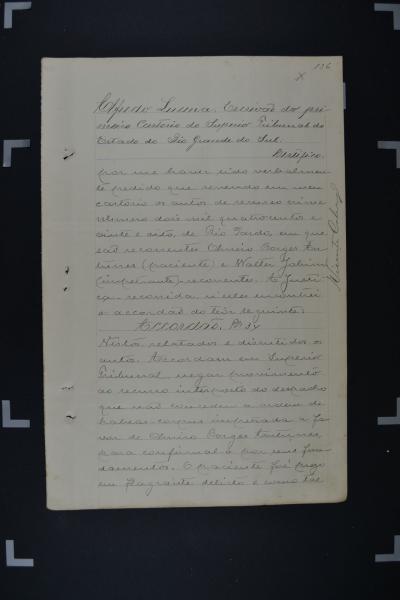 136
Alfredo Lucena. Escrivão do pri-
meiro Cartorio do Superior Tribunal do
Estado do Rio Grande do Sul.
Certifico
por me haver sido verbalmen-
te pedido que revendo em meu
cartorio os autos de recurso crime
numero dois mil quatrocentos e
vinte e oito, de Rio Pardo, em que
são recorrentes Borges An-
tunes (paciente) e Walter Jobim
(impetrante) recorrentes. A Justi-
ça recorrida, n'elles encontrei
o accordão do teor seguinte:
Accordão.
Vistos, relatados e discutidos os
autos. Accordam em Superior
Tribunal negar provimento
ao recurso interposto do despacho
que não concedeu a ordem de
habeas-corpus impetrada a fa-
vor de Borges Antunes
para confirmal-o por seus fun-
damentos. O paciente foi preso
em flagrante delicto e como tal